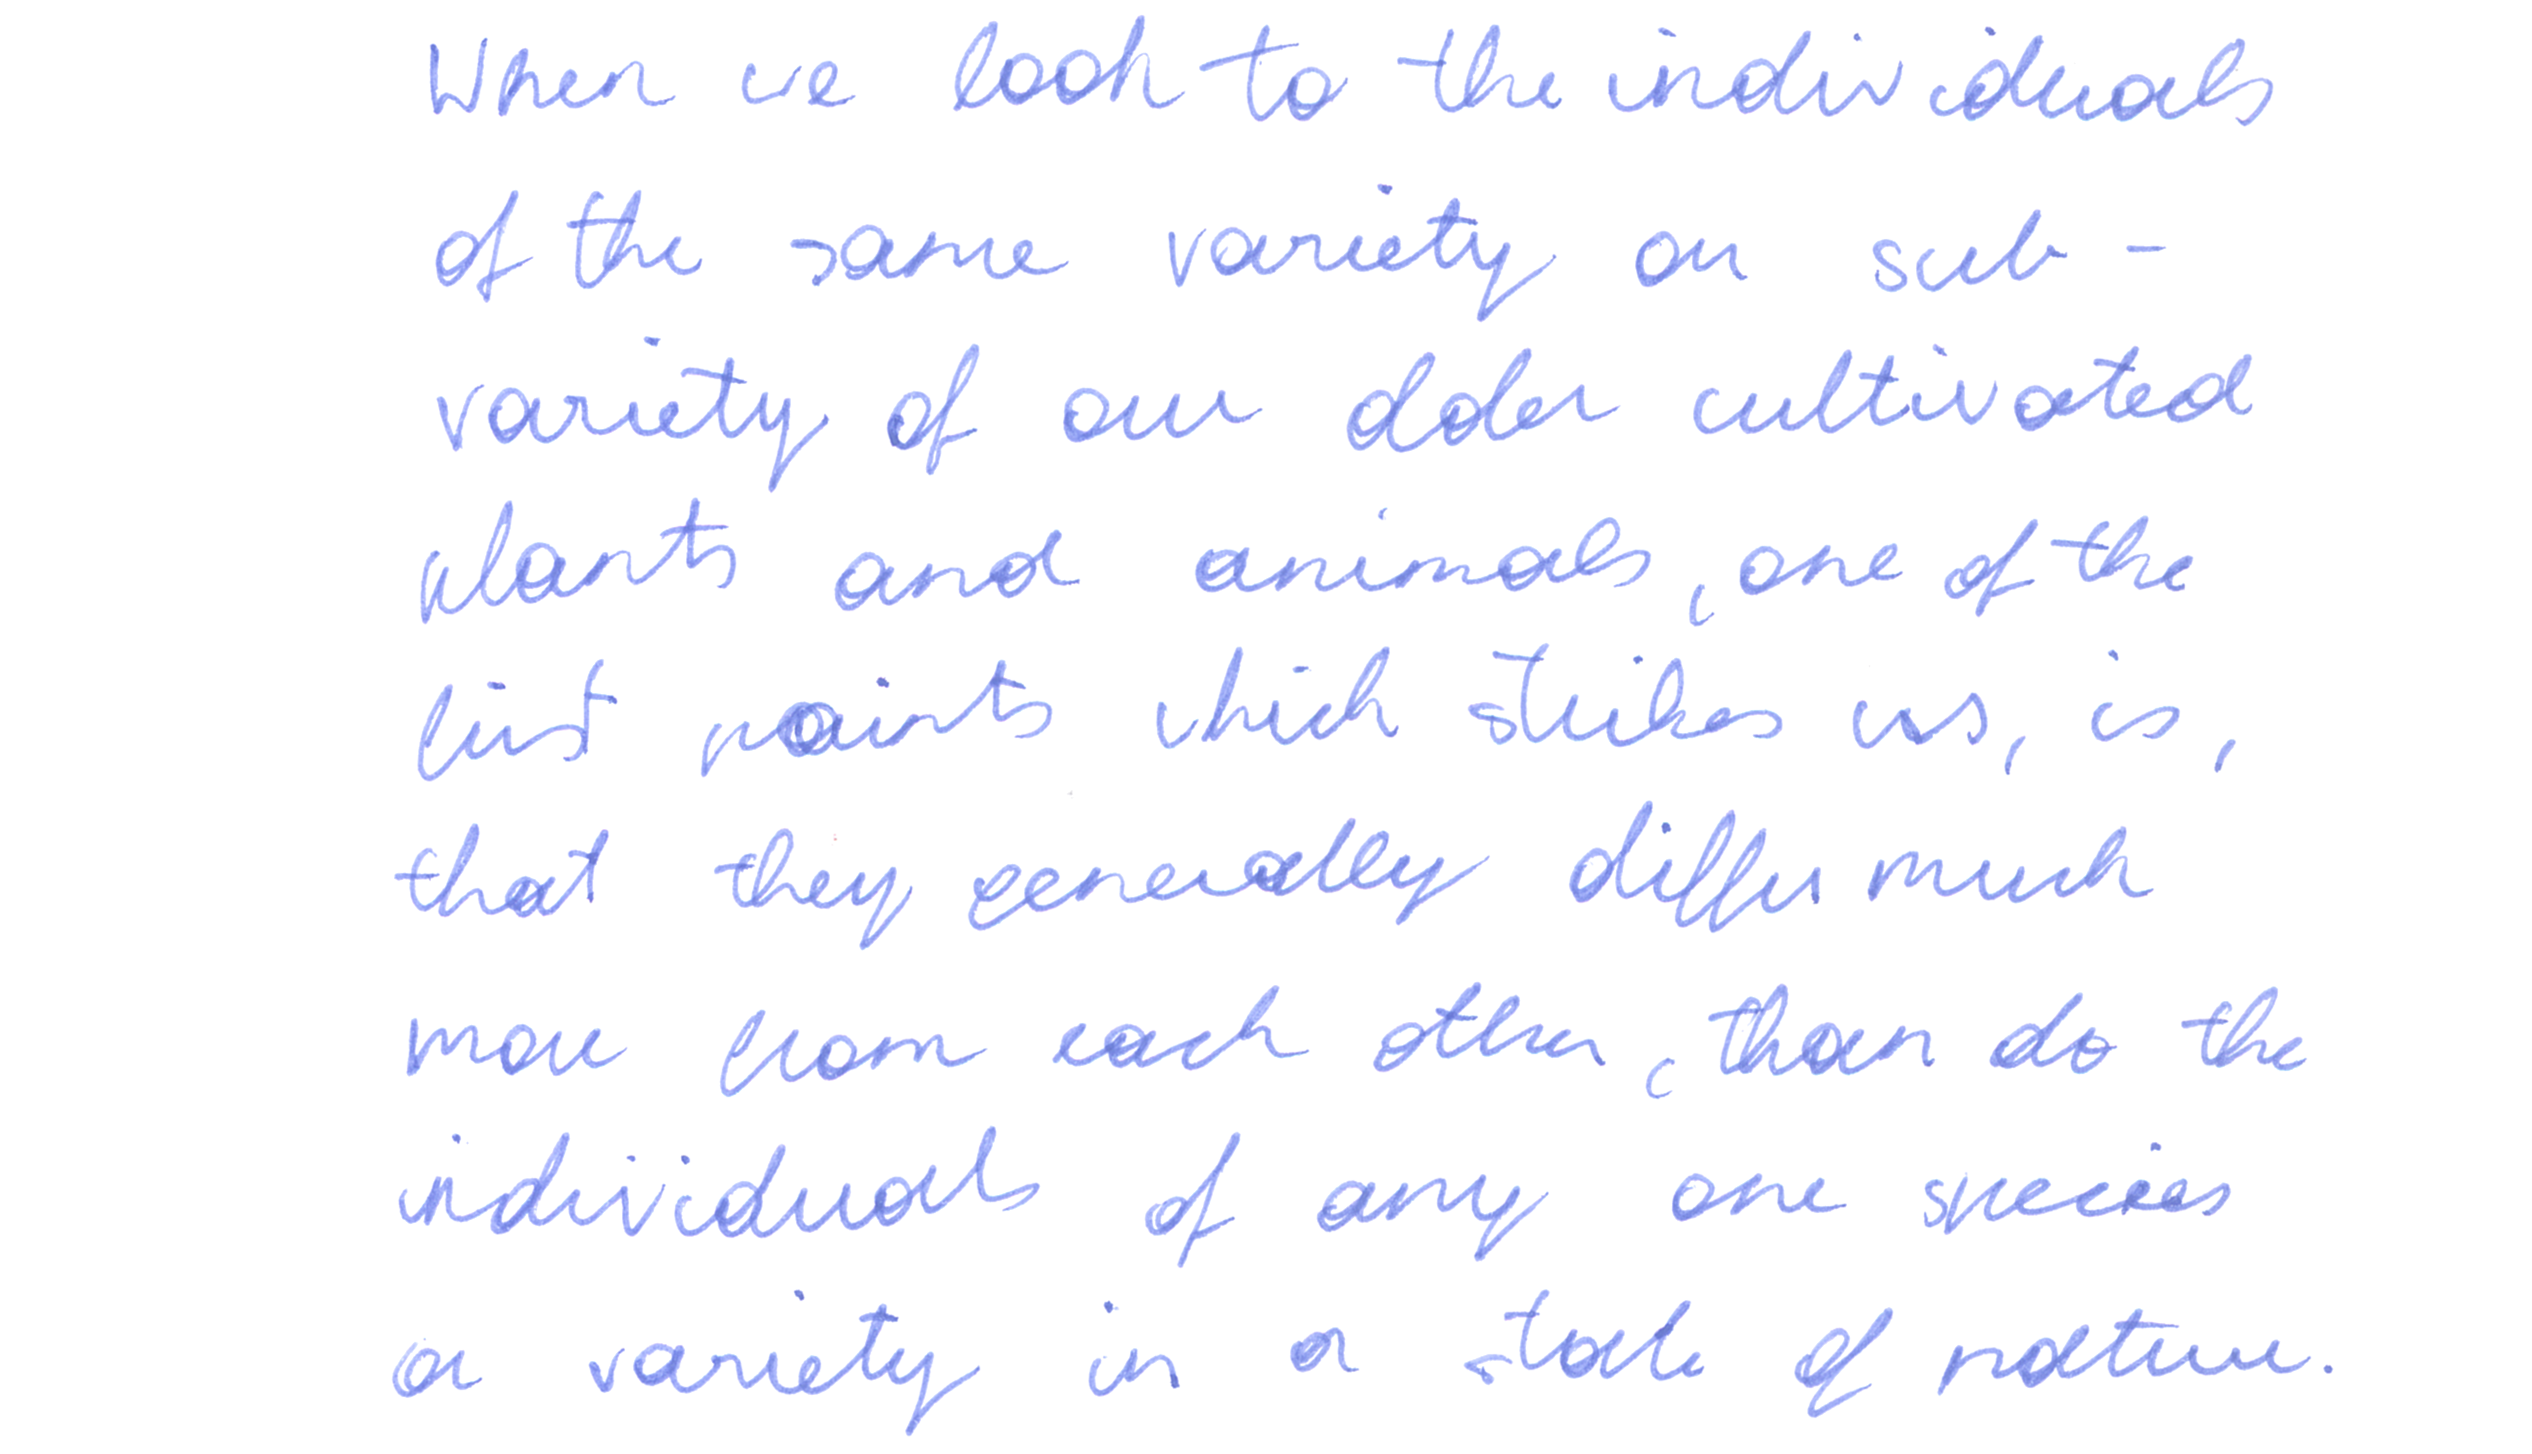 When we look to the individuals
of the same variety or sub-
variety of our older cultivated
plants and animals, one of the
first points which strikes us, is,
that they generally differ much
more from each other, than do the
individuals of any one species
or variety in a state of nature.